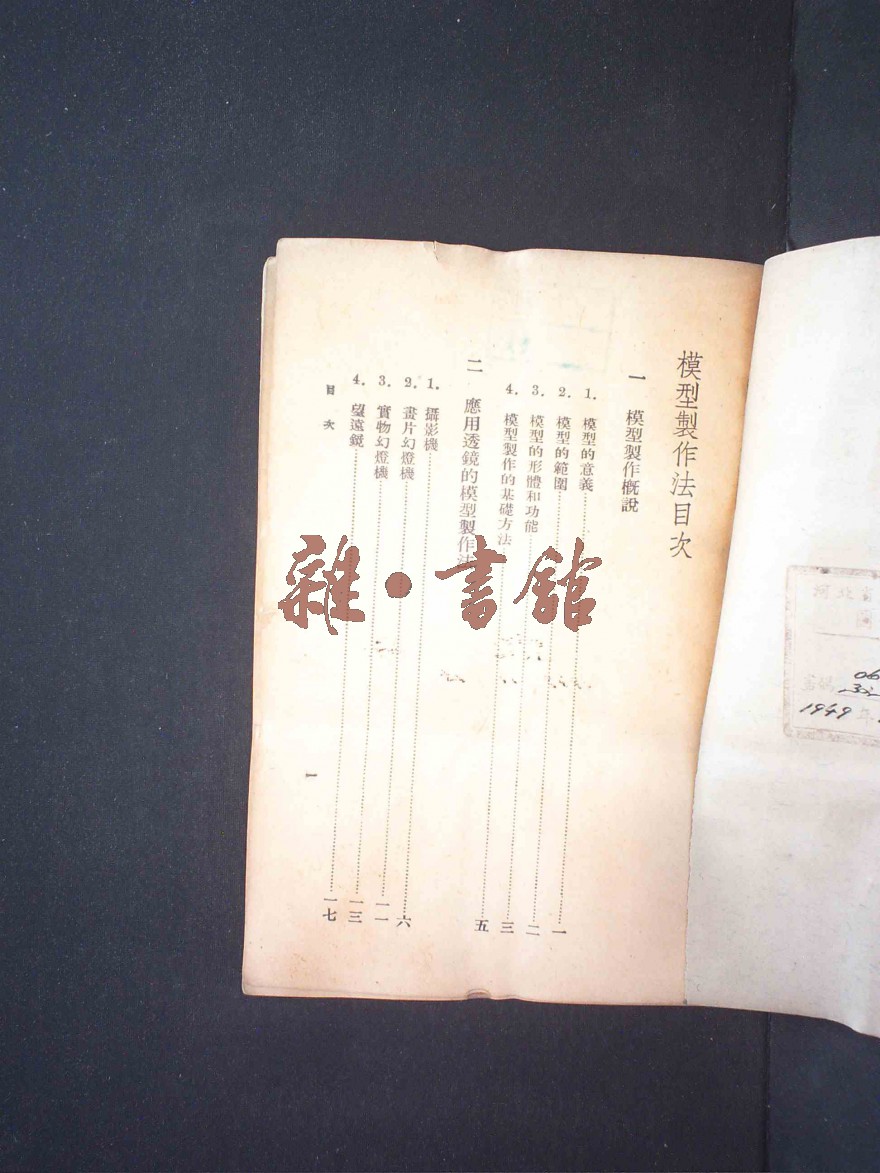 模型製作法目次
一 模型製作概說
1. 模型的意義……一
2. 模型的範圍……二
3. 模型的形體和功能……三
4. 模型製作的基礎方法……五
二 應用透鏡的模型製作法
1. 攝影機……六
2. 畫片幻燈機……一一
3. 實物幻燈機……一三
4. 望遠鏡……一七
目次
一
雜·書館
河北省
圖
1949年